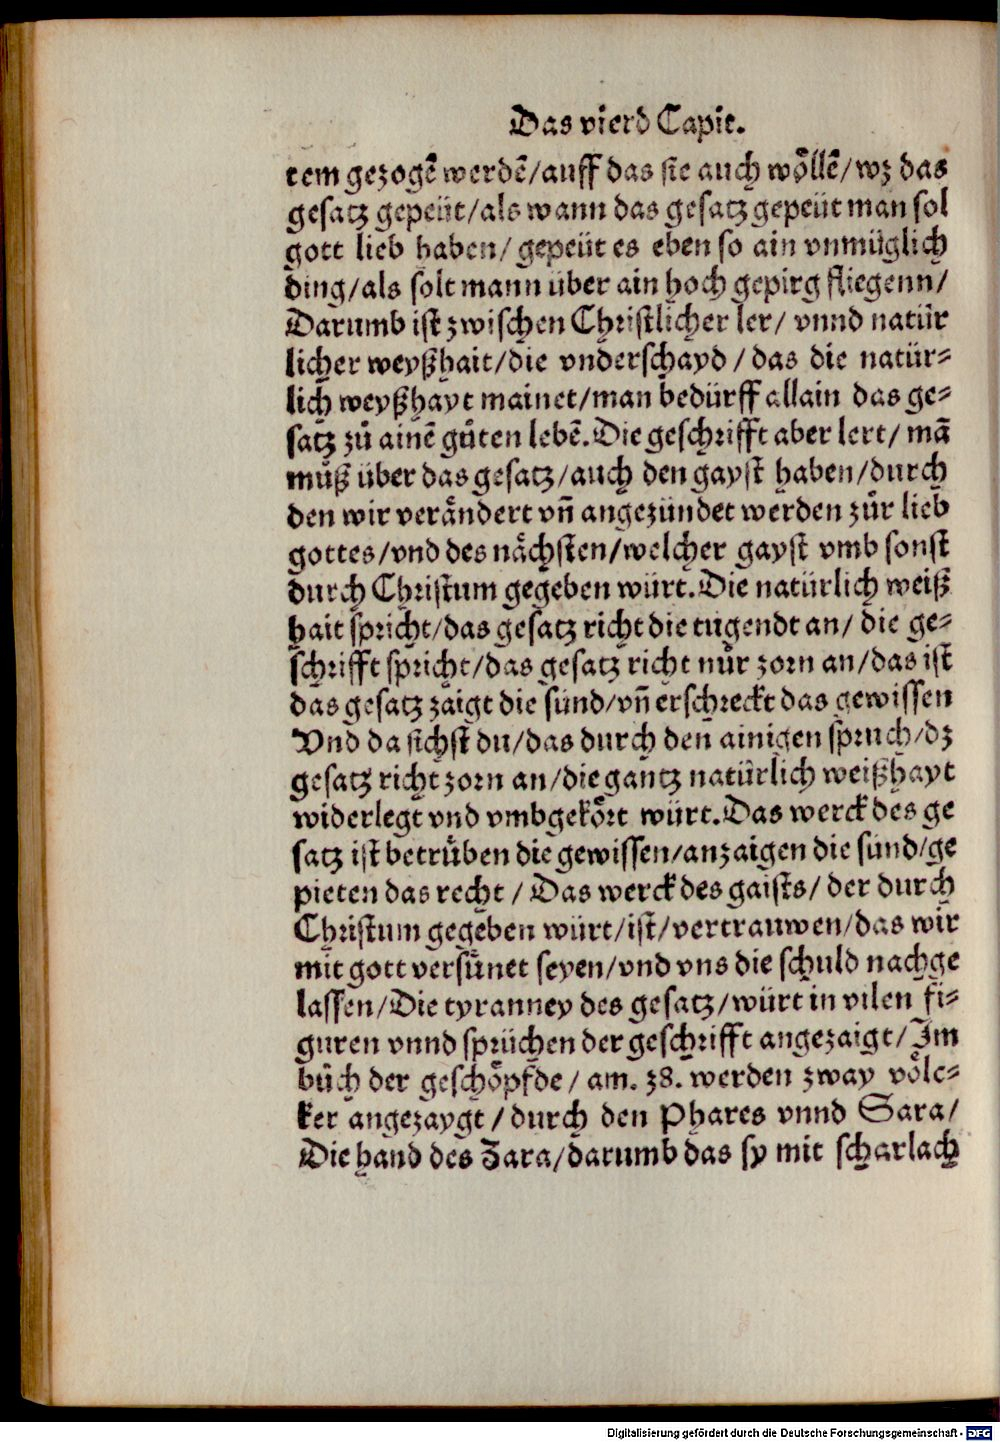 Das vierd Capit.
tem gezogẽ werdẽ/auff das sie auch wöllẽ/wz das
gesatz gepeüt/als wann das gesatz gepeüt man sol
gott lieb haben/ gepeüt es eben so ain vnmüglich
ding/als solt mann über ain hoch gepirg fliegenn/
Darumb ist zwischen Christlicher ler/ vnnd natür
licher weyßhait/die vnderschayd / das die natür⸗
lich weyßhayt mainet/man bedürff allain das ge⸗
satz zů ainẽ gůten lebẽ. Die geschrifft aber lert/ mã
můß über das gesatz/auch den gayst haben/durch
den wir verändert vñ angezündet werden zůr lieb
gottes/vnd des nächsten/welcher gayst vmb sonst
durch Christum gegeben würt. Die natürlich weiß
hait spricht/das gesatz richt die tugendt an/ die ge⸗
schrifft spricht/das gesatz richt nůr zorn an/das ist
das gesatz zaigt die sünd/vñ erschreckt das gewissen
Vnd da sichst du/das durch den ainigen spruch/dz
gesatz richt zorn an/die gantz natürlich weißhayt
widerlegt vnd vmbgekört würt. Das werck des ge
satz ist betrüben die gewissen/anzaigen die sünd/ge
pieten das recht / Das werck des gaists/ der durch
Christum gegeben würt/ist/vertrauwen/das wir
mit gott versünet seyen/vnd vns die schuld nachge
lassen/Die tyranney des gesatz/würt in vilen fi⸗
guren vnnd sprüchen der geschrifft angezaigt/Im
bůch der geschöpfde/ am. 38. werden zway völc⸗
ker angezaygt / durch den Phares vnnd Sara/
Die hand des Zara/darumb das sy mit scharlach
Digitalisierung gefördert durch die Deutsche Forschungsgemeinschaft - DFG